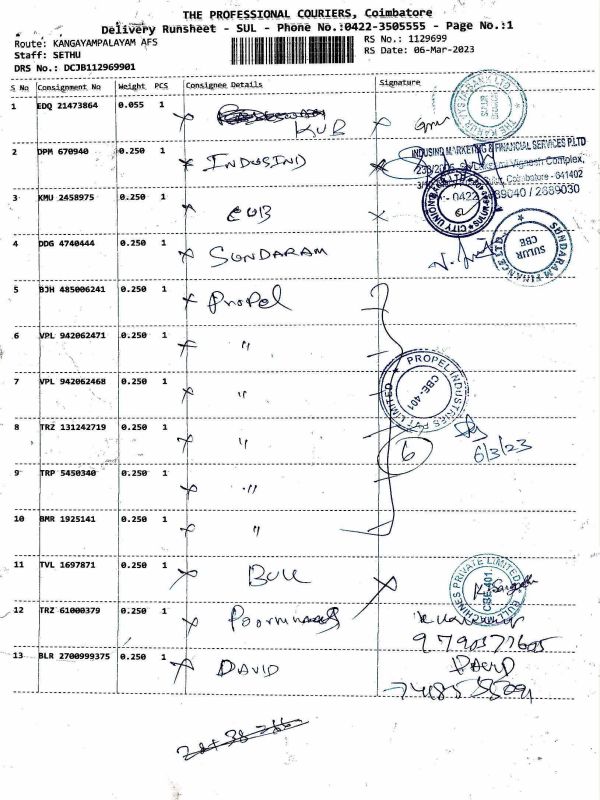 THE PROFESSIONAL COURIERS, Coimbatore
Delivery Runsheet - SUL - Phone No.:0422-3505555 - Page No.:1
Route: KANGAYAMPALAYAM AFS
RS No.: 1129699
Staff: SETHU
RS Date: 06-Mar-2023
DRS No.: DCJB112969901
S No Consignment No Weight PCS Consignee Details Signature
1 EDQ 21473864 0.055 1 KVB
THE KARUR VYSYA BANK LTD.
SULUR
2 DPM 670940 0.250 1 INDUSIND
INDUSIND MARKETING & FINANCIAL SERVICES P.LTD
Vignesh Complex,
Coimbatore - 641402
2689040 / 2689030
3 KMU 2458975 0.250 1 CUB
CITY UNION
4 DDG 4740444 0.250 1 SUNDARAM
SUNDARAM FINANCE LTD.
SULUR
CBE
5 BJH 485006241 0.250 1 Propel
6 VPL 942062471 0.250 1 "
7 VPL 942062468 0.250 1 "
PROPEL INDUSTRIES PVT LIMITED
CBE-401
8 TRZ 131242719 0.250 1 "
6
6/3/23
9 TRP 5450340 0.250 1 "
10 BMR 1925141 0.250 1 "
11 TVL 1697871 0.250 1 BULL
BULL MACHINES PRIVATE LIMITED
CBE-401.
12 TRZ 61000379 0.250 1
13 BLR 2700999375 0.250 1 DAVID